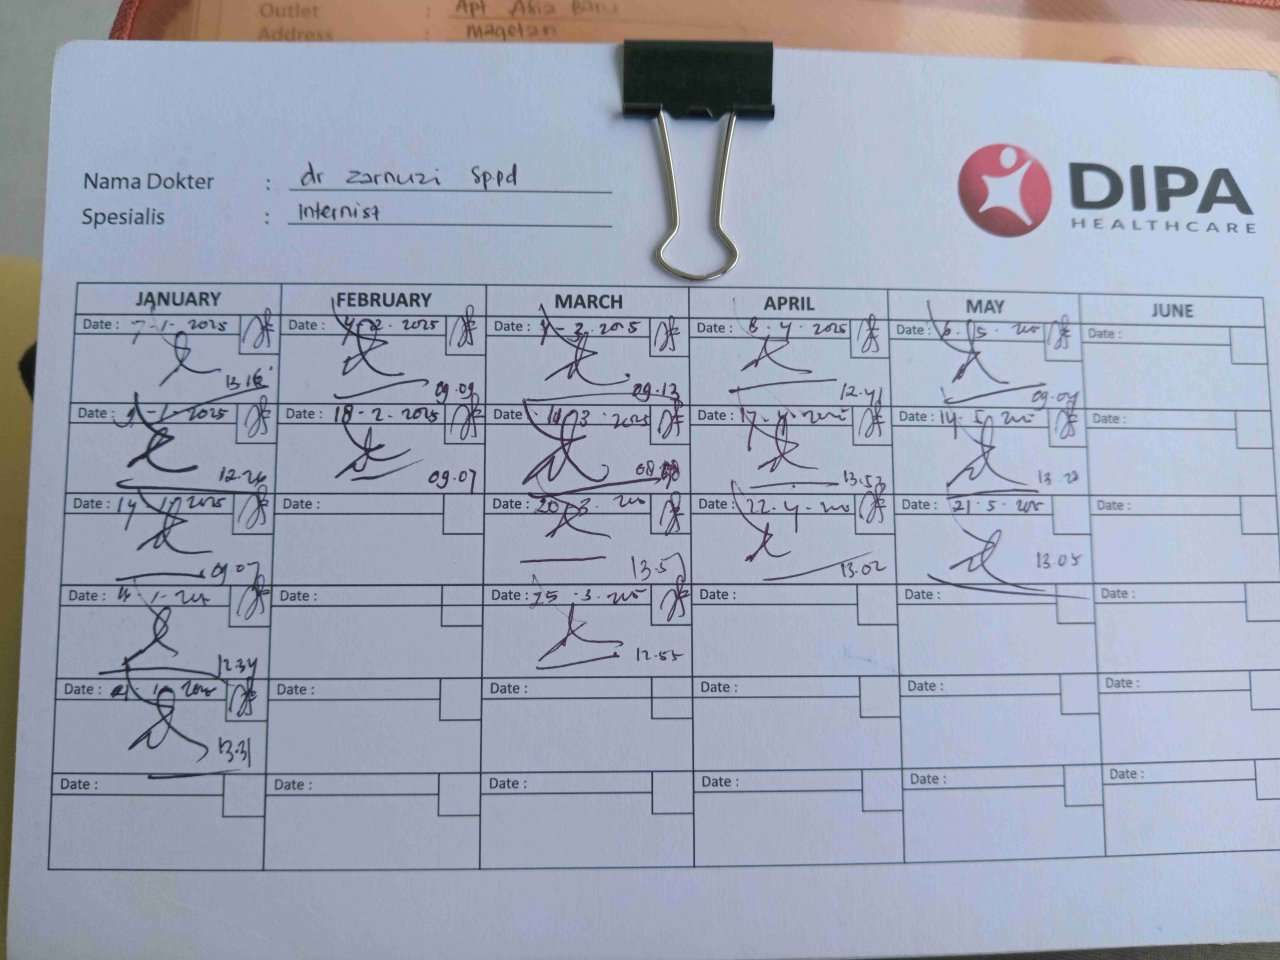 Outlet : Apt Asia Baru
Address : Magetan
Nama Dokter : dr Zarnuzi Sp.pd
Spesialis : Internist
DIPA
HEALTHCARE
JANUARY FEBRUARY MARCH APRIL MAY JUNE
Date : 7-1-2025 Date : 4-2-2025 Date : 4-3-2025 Date : 8-4-2025 Date : 6.5. Date :
09.09 09.13 12.41 09.04
Date : -1-2025 Date : 18-2-2025 Date : 3-2025 Date : 17-4- Date : 14-5- Date :
12.26 09.07 13.53
Date : 14 2025 Date : Date : 20-3- Date : 22-4- Date : 21-5- Date :
09.07 13.57 13.02 13.05
Date : Date : Date : 25-3- Date : Date : Date :
12.34 12.55
Date : Date : Date : Date : Date : Date :
13.31
Date : Date : Date : Date : Date : Date :